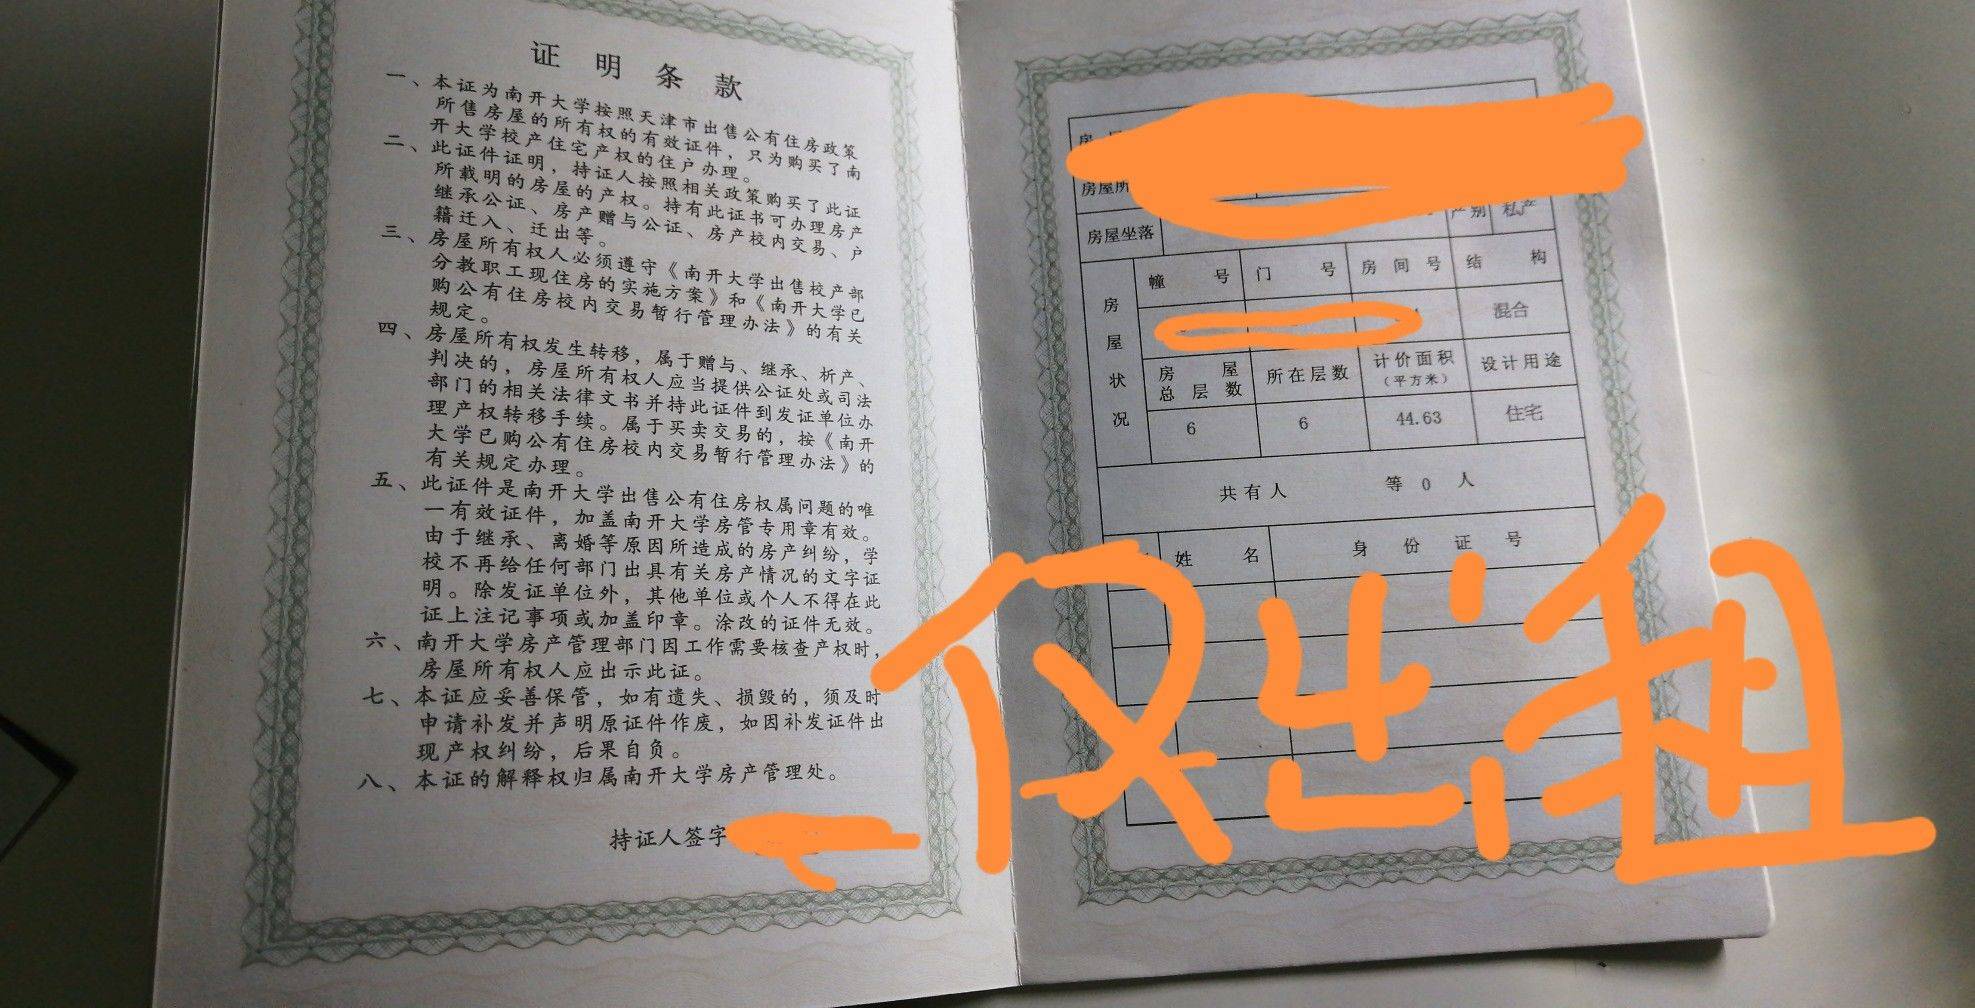 证明条款
一、本证为南开大学按照天津市出售公有住房政策
所售房屋的所有权的有效证件，只为购买了南
开大学校产住宅产权的住户办理。
二、此证件证明，持证人按照相关政策购买了此证
所载明的房屋的产权。持有此证书可办理房产
继承公证、房产赠与公证、房产校内交易、户
籍迁入、迁出等。
三、房屋所有权人必须遵守《南开大学出售校产部
分教职工现住房的实施方案》和《南开大学已
购公有住房校内交易暂行管理办法》的有关
规定。
四、房屋所有权发生转移，属于赠与、继承、析产、
判决的，房屋所有权人应当提供公证处或司法
部门的相关法律文书并持此证件到发证单位办
理产权转移手续。属于买卖交易的，按《南开
大学已购公有住房校内交易暂行管理办法》的
有关规定办理。
五、此证件是南开大学出售公有住房权属问题的唯
一有效证件，加盖南开大学房管专用章有效。
由于继承、离婚等原因所造成的房产纠纷，学
校不再给任何部门出具有关房产情况的文字证
明。除发证单位外，其他单位或个人不得在此
证上注记事项或加盖印章。涂改的证件无效。
六、南开大学房产管理部门因工作需要核查产权时，
房屋所有权人应出示此证。
七、本证应妥善保管，如有遗失、损毁的，须及时
申请补发并声明原证件作废，如因补发证件出
现产权纠纷，后果自负。
八、本证的解释权归属南开大学房产管理处。
持证人签字
房屋所
房屋坐落 产别 私产
房屋状况
幢号 门号 房间号 结构
混合
房屋总层数 所在层数 计价面积（平方米） 设计用途
6 6 44.63 住宅
共有人 等 0 人
姓名 身份证号
仅出租